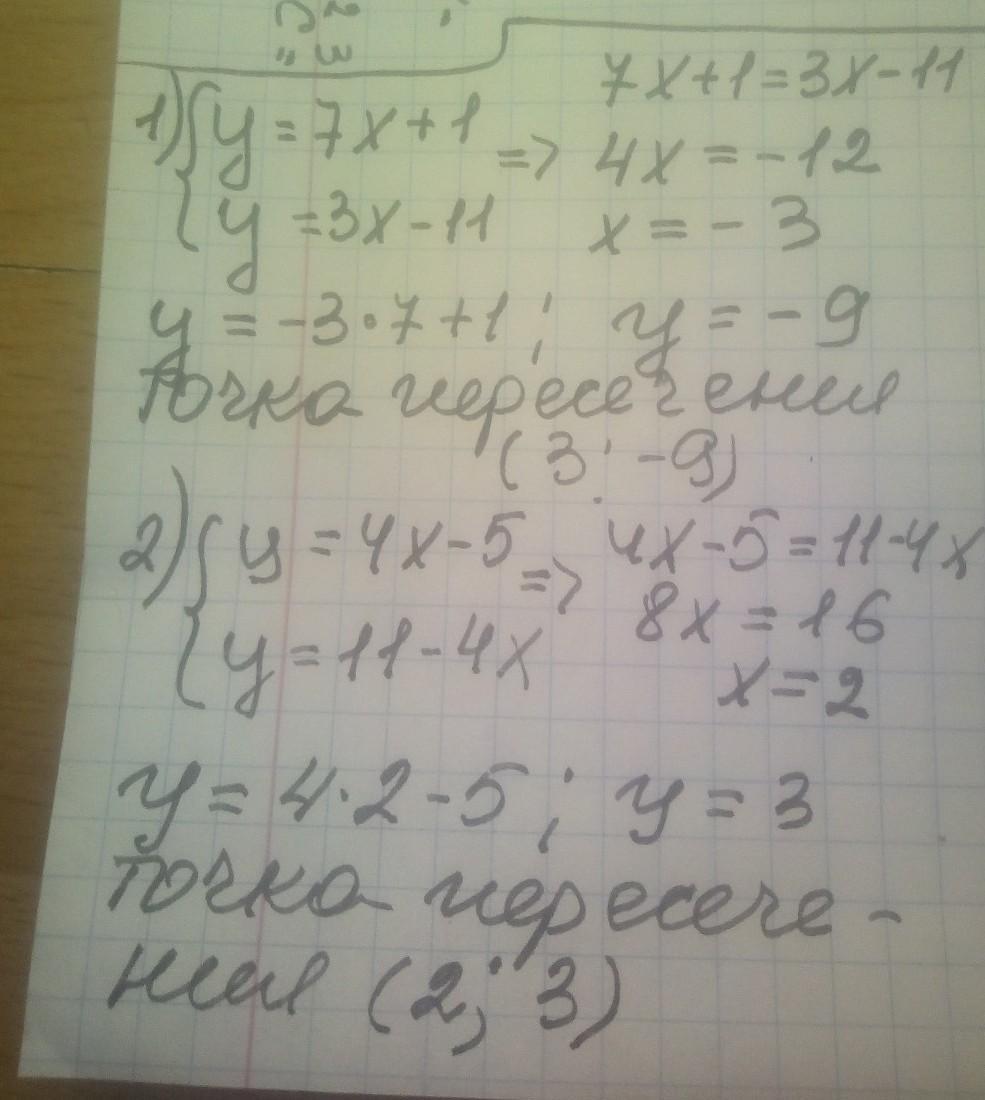 1) { y = 7x + 1 => 7x + 1 = 3x - 11
y = 3x - 11 4x = - 12
x = - 3
y = -3 · 7 + 1 ; y = - 9
точка пересечения
(3 ; -9)
2) { y = 4x - 5 => 4x - 5 = 11 - 4x
y = 11 - 4x 8x = 16
x = 2
y = 4 · 2 - 5 ; y = 3
точка пересече -
ния (2 ; 3)